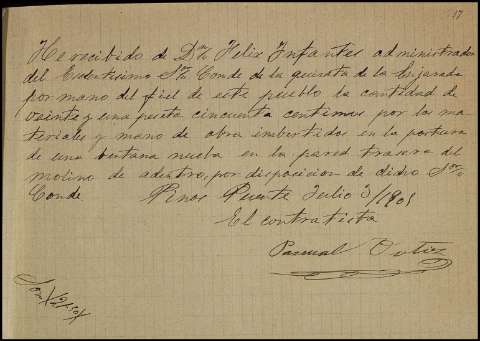 17
He recibido de Dn Felix Infantes administrador
del Exentisimo Sr Conde de la quinta de la Enjarada
por mano del fiel de este pueblo la cantidad de
veinte y una peseta cincuenta centimos por los ma-
teriales y mano de obra imbertidos en la portura
de una bentana nueba en la pared trasera del
molino de adentro, por disposicion de dicho Sor
Conde Pinos Puente Julio 3/1901
El contratista
Pascual Ortiz